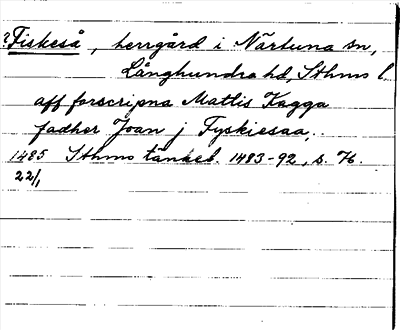 ? Fiskeså, herrgård i Närtuna sn,
Långhundra hd, Sthms l.
aff forscripna Mattis Kagga
fadher Joan j Fyskiesaa,.
1485 Sthms tänkeb. 1483-92, s. 76.
22/1